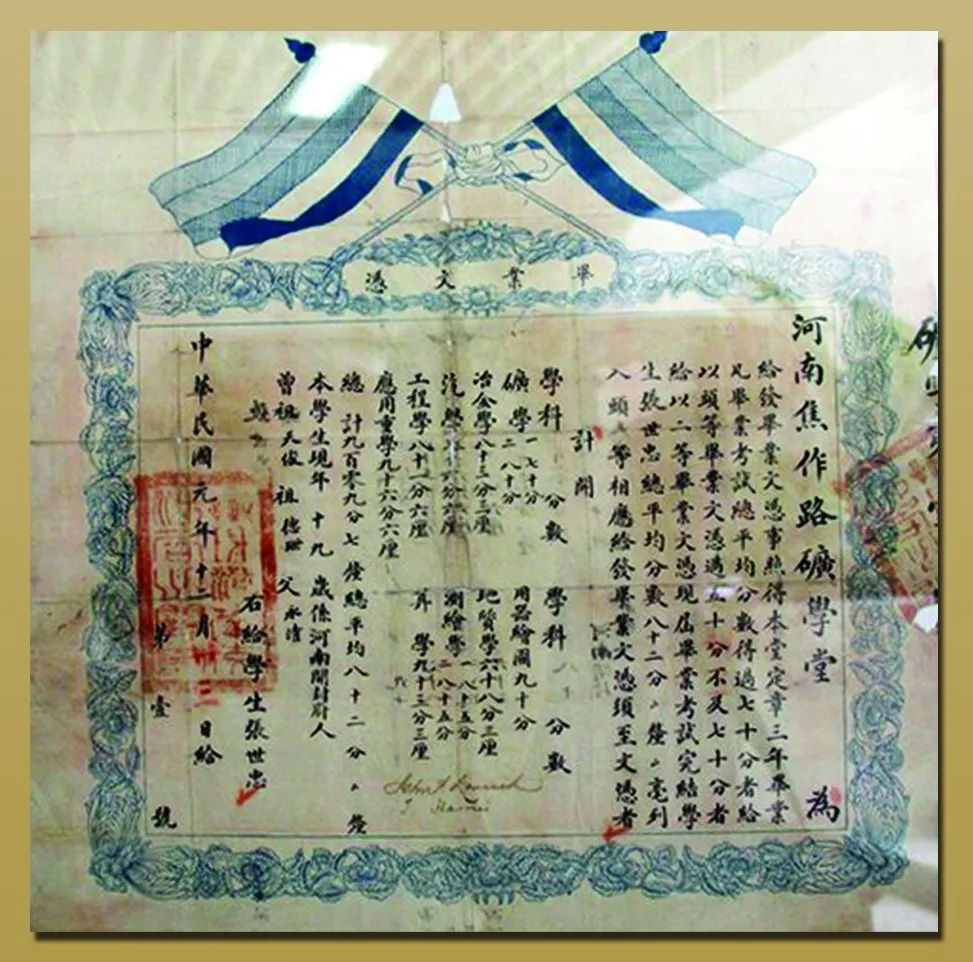 畢業文憑
河南焦作路礦學堂 為
給發畢業文憑事照得本堂定章三年畢業
凡畢業考試總平均分數得過七十分者給
以頭等畢業文憑過五十分不及七十分者
給以二等畢業文憑現屆畢業考試完結學
生張世忠總平均分數八十二分 釐 毫列
入頭等相應給發畢業文憑須至文憑者
計開
學科 分數 學科 分數
礦學 一七十分 二八十分 用器繪圖九十分
冶金學八十三分三厘 地質學六十八分三厘
測繪學 一八十五分 二八十五分
工程學八十一分六厘 算學九十三分三厘
應用重學九十六分六厘
總計九百零九分七釐總平均八十二分 釐
本學生現年十九歲係河南開封府人
曾祖天俊 祖德 父永清
右給學生張世忠
中華民國元年十二月 三日給
第壹號